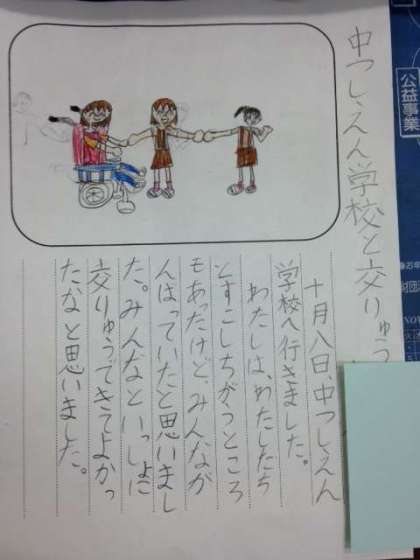 中つしえん学校と交りゅう
十月八日、中つしえん
学校へ行きました。
わたしは、わたしたち
とすこしちがうところ
もあったけど、みんなが
んばっていたと思いまし
た。みんなといっしょに
交りゅうできてよかっ
たなと思いました。
公益事業
財団